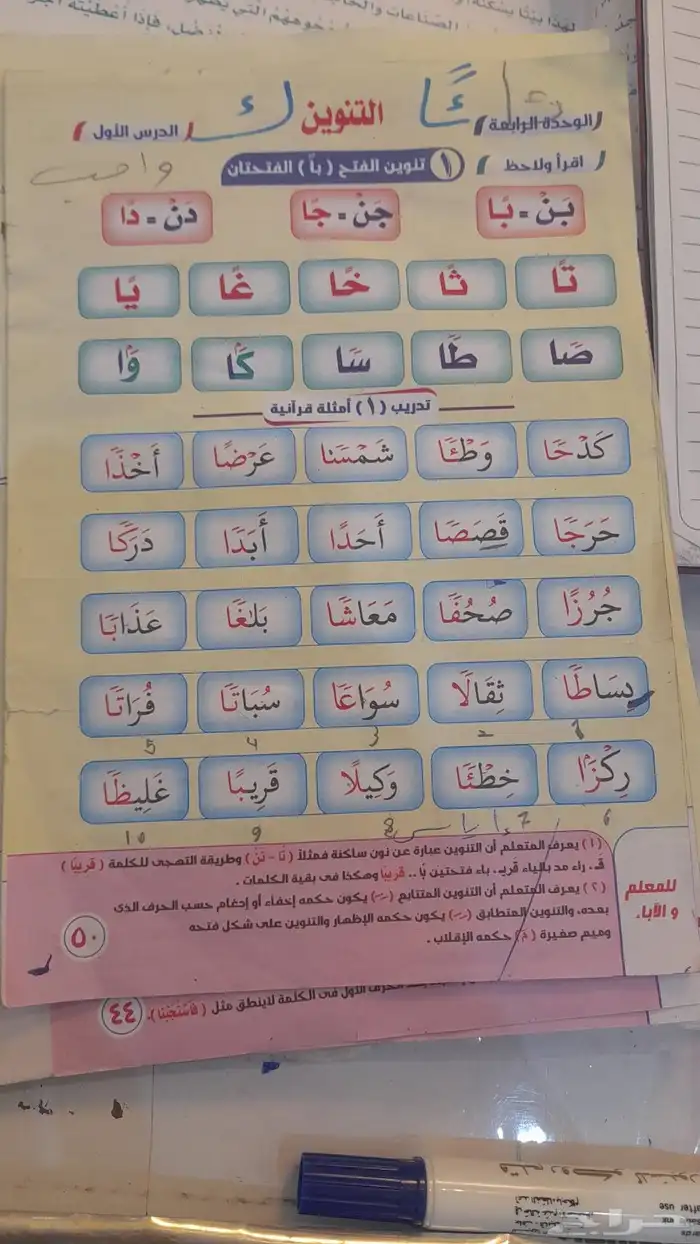 الوحدة الرابعة
التنوين
الدرس الأول
اقرأ ولاحظ
١ تنوين الفتح (بًا) الفتحتان
واجب
بَنْ = بًا جَنْ = جًا دَنْ = دًا
تًا ثًا خًا غًا يًا
صًا طًا سًا كًا وًا
تدريب (١) أمثلة قرآنية
كَدْحًا وَطْـًٔا شَمْسًا عَرْضًا أَخْذًا
حَرَجًا قَصَصًا أَحَدًا أَبَدًا دَرَكًا
جُرُزًا صُحُفًا مَعَاشًا بَلَغًا عَذَابًا
بِسَاطًا ثِقَالًا سُوَاعًا سُبَاتًا فُرَاتًا
1 2 3 4 5
رِكْزًا خِطْـًٔا وَكِيلًا قَرِيبًا غَلِيظًا
6 7 8 9 10
للمعلم
و الآباء.
(١) يعرف المتعلم أن التنوين عبارة عن نون ساكنة فمثلاً (تًا - تَنْ) وطريقة التهجى للكلمة (قَرِيبًا)
قَـ، راء مد بالياء قَرِيـ، باء فتحتين بًا .. قَرِيبًا وهكذا فى بقية الكلمات.
(٢) يعرف المتعلم أن التنوين المتتابع (ـً) يكون حكمه إخفاء أو إدغام حسب الحرف الذى
بعده، والتنوين المتطابق (ـً) يكون حكمه الإظهار والتنوين على شكل فتحه
وميم صغيرة (ـَۢ) حكمه الإقلاب.
٥٠
الحرف الأول فى الكلمة لاينطق مثل (فَاسْتَجَبْنَا).
٤٤
after use
حراج